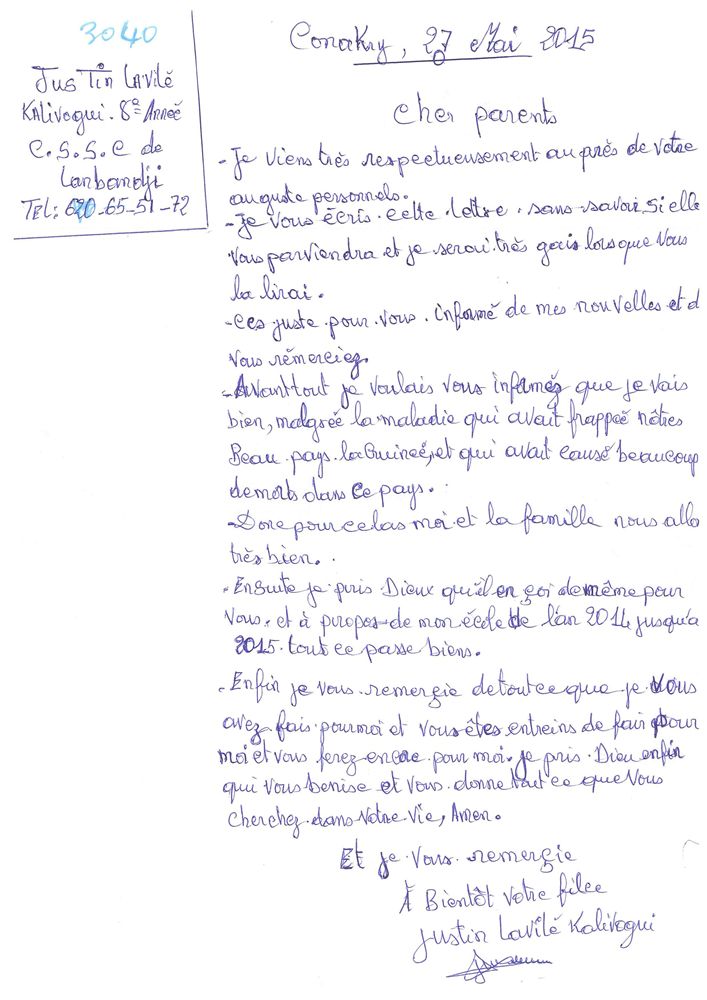 3040
Justin Lavilé
Kalivogui. 8e Année
C.S.S.C de
Lanbandji
Tel: 620-65-51-72
Conakry, 27 Mai 2015
Cher parents
- Je viens très respectueusement au près de votre
auguste personnels.
- Je vous écris cette lettre. sans savoir si elle
vous parviendra et je serai très gais lorsque vous
la lirai.
- Ces juste pour vous. informé de mes nouvelles et d
vous rémerciez.
- Avant tout je voulais vous informéz que je vais
bien, malgrée la maladie qui avait frappeé nôtres
Beau pays la Guineé, et qui avait causé beaucoup
demorts dans ce pays.
- Donc pour celas moi et la famille nous allo
très bien.
- Ensuite je pris Dieux qu'il en çoi demême pour
vous. et à propos de mon école de l'an 2014 jusqu'a
2015 tout ce passe biens.
- Enfin je vous remerçie detout ce que je vous
avez fais pourmoi et vous êtes entreins de fair pour
moi et vous ferez encore pour moi. je pris Dieu enfin
qui vous benise et vous donne tout ce que vous
cherchez dans votre vie, Amen.
Et je vous remerçie
À Bientôt votre filee
Justin Lavilé Kalivogui